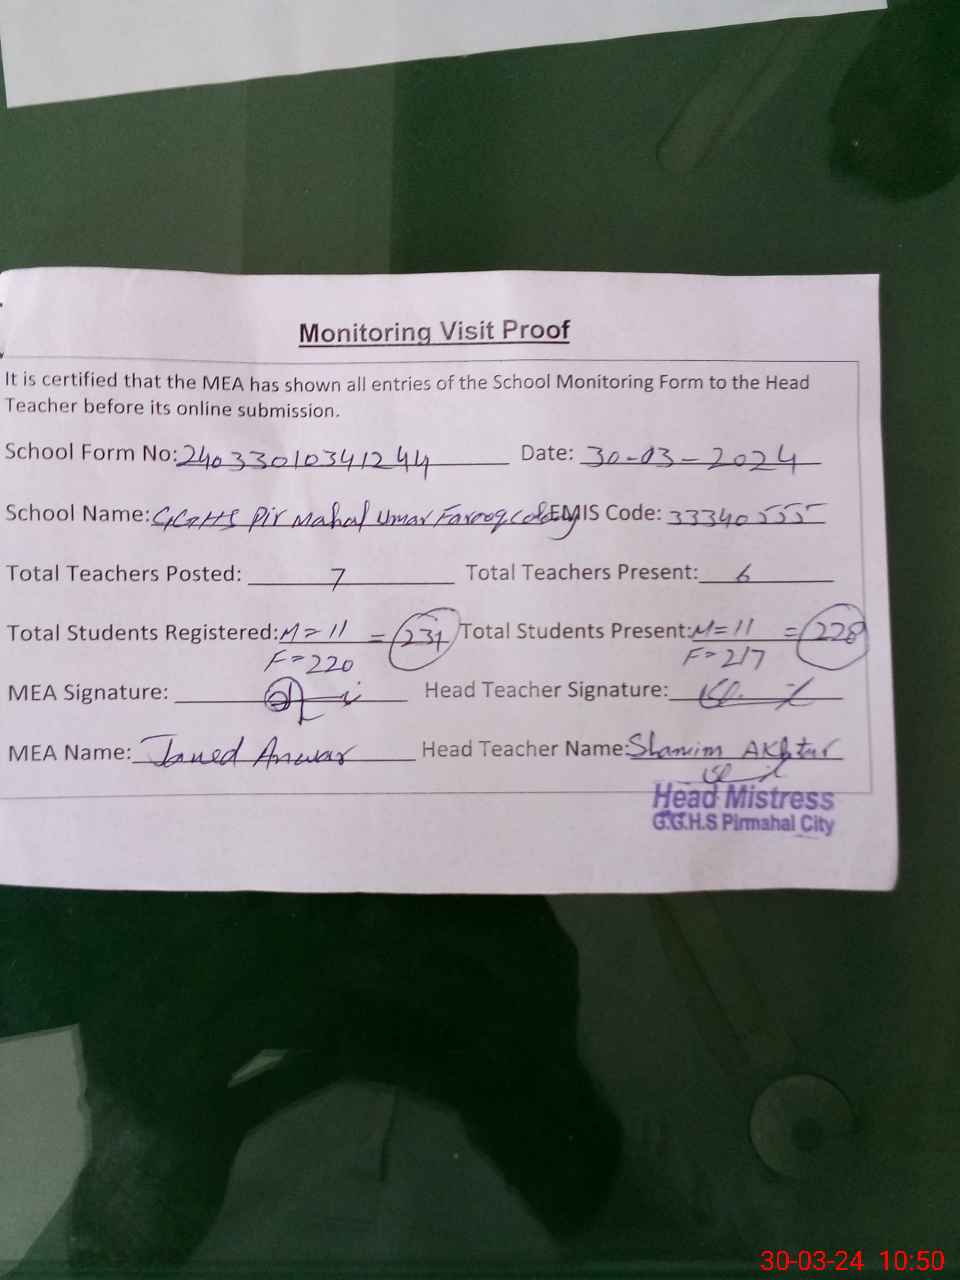 Monitoring Visit Proof
It is certified that the MEA has shown all entries of the School Monitoring Form to the Head
Teacher before its online submission.
School Form No: 24033010341244 Date: 30-03-2024
School Name: GGHS Pir Mahal Umar Farooq colony EMIS Code: 33340555
Total Teachers Posted: 7 Total Teachers Present: 6
Total Students Registered: M=11 = 231 Total Students Present: M=11 = 228
F=220 F=217
MEA Signature: Head Teacher Signature:
MEA Name: Javed Anwar Head Teacher Name: Shamim Akhtar
Head Mistress
G.G.H.S Pirmahal City
30-03-24 10:50